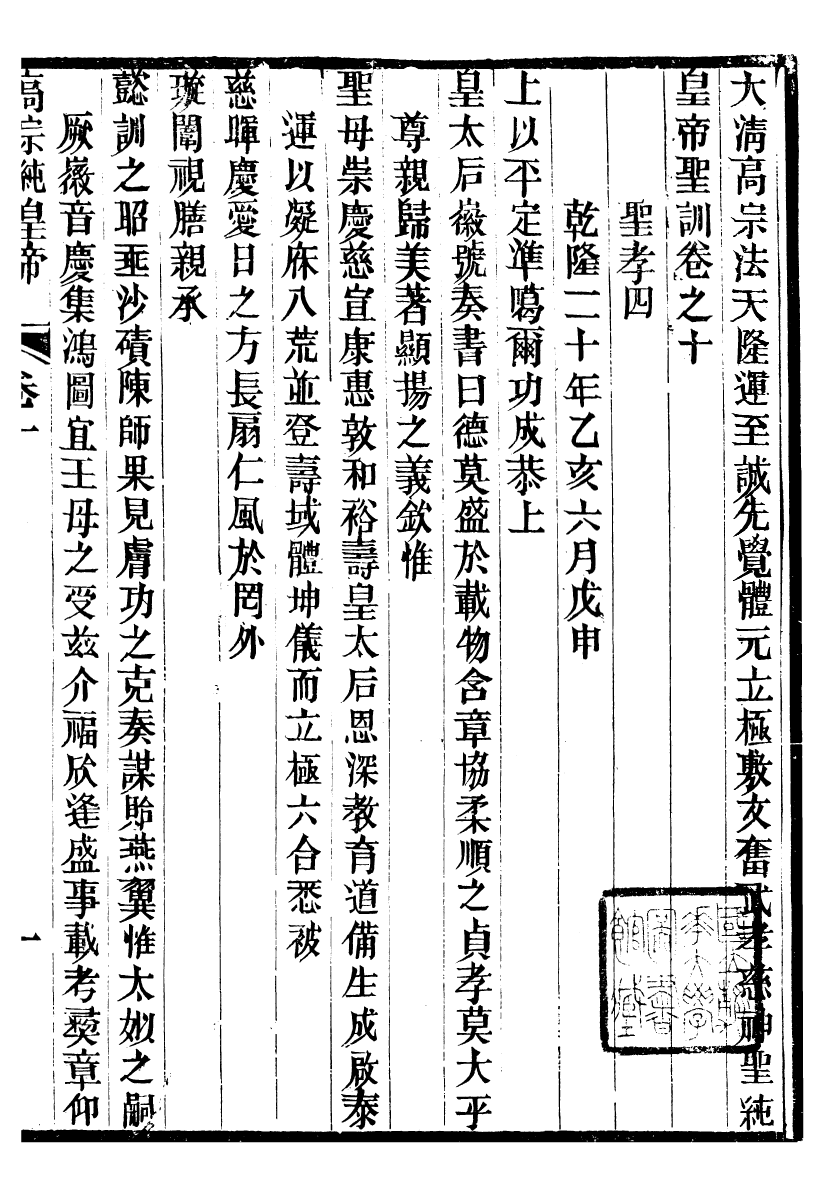 大清高宗法天隆運至誠先覺體元立極敷文奮武孝慈神聖純
皇帝聖訓卷之十
聖孝四
乾隆二十年乙亥六月戊申
上以平定準噶爾功成恭上
皇太后徽號奏書曰德莫盛於載物含章協柔順之貞孝莫大乎
尊親歸美著顯揚之義欽惟
聖母崇慶慈宣康惠敦和裕壽皇太后恩深教育道備生成啟泰
運以凝庥八荒並登壽域體坤儀而立極六合悉被
慈暉慶愛日之方長扇仁風於罔外
璇闈視膳親承
懿訓之昭垂沙磧陳師果見膚功之克奏謀貽燕翼惟太姒之嗣
厥徽音慶集鴻圖宜王母之受茲介福欣逢盛事載考彝章仰
高宗純皇帝
卷十
一
國立清華大學圖書館藏